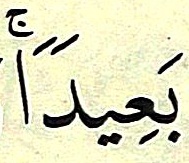 بَعِيدًاۚ